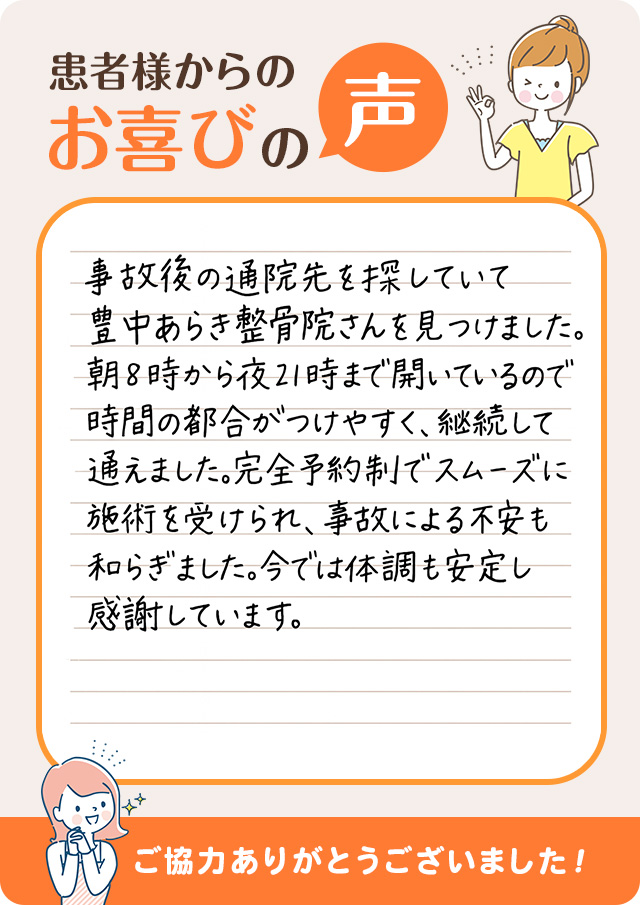 患者様からの
お喜びの声
事故後の通院先を探していて
豊中あらき整骨院さんを見つけました。
朝8時から夜21時まで開いているので
時間の都合がつけやすく、継続して
通えました。完全予約制でスムーズに
施術を受けられ、事故による不安も
和らぎました。今では体調も安定し
感謝しています。
ご協力ありがとうございました!